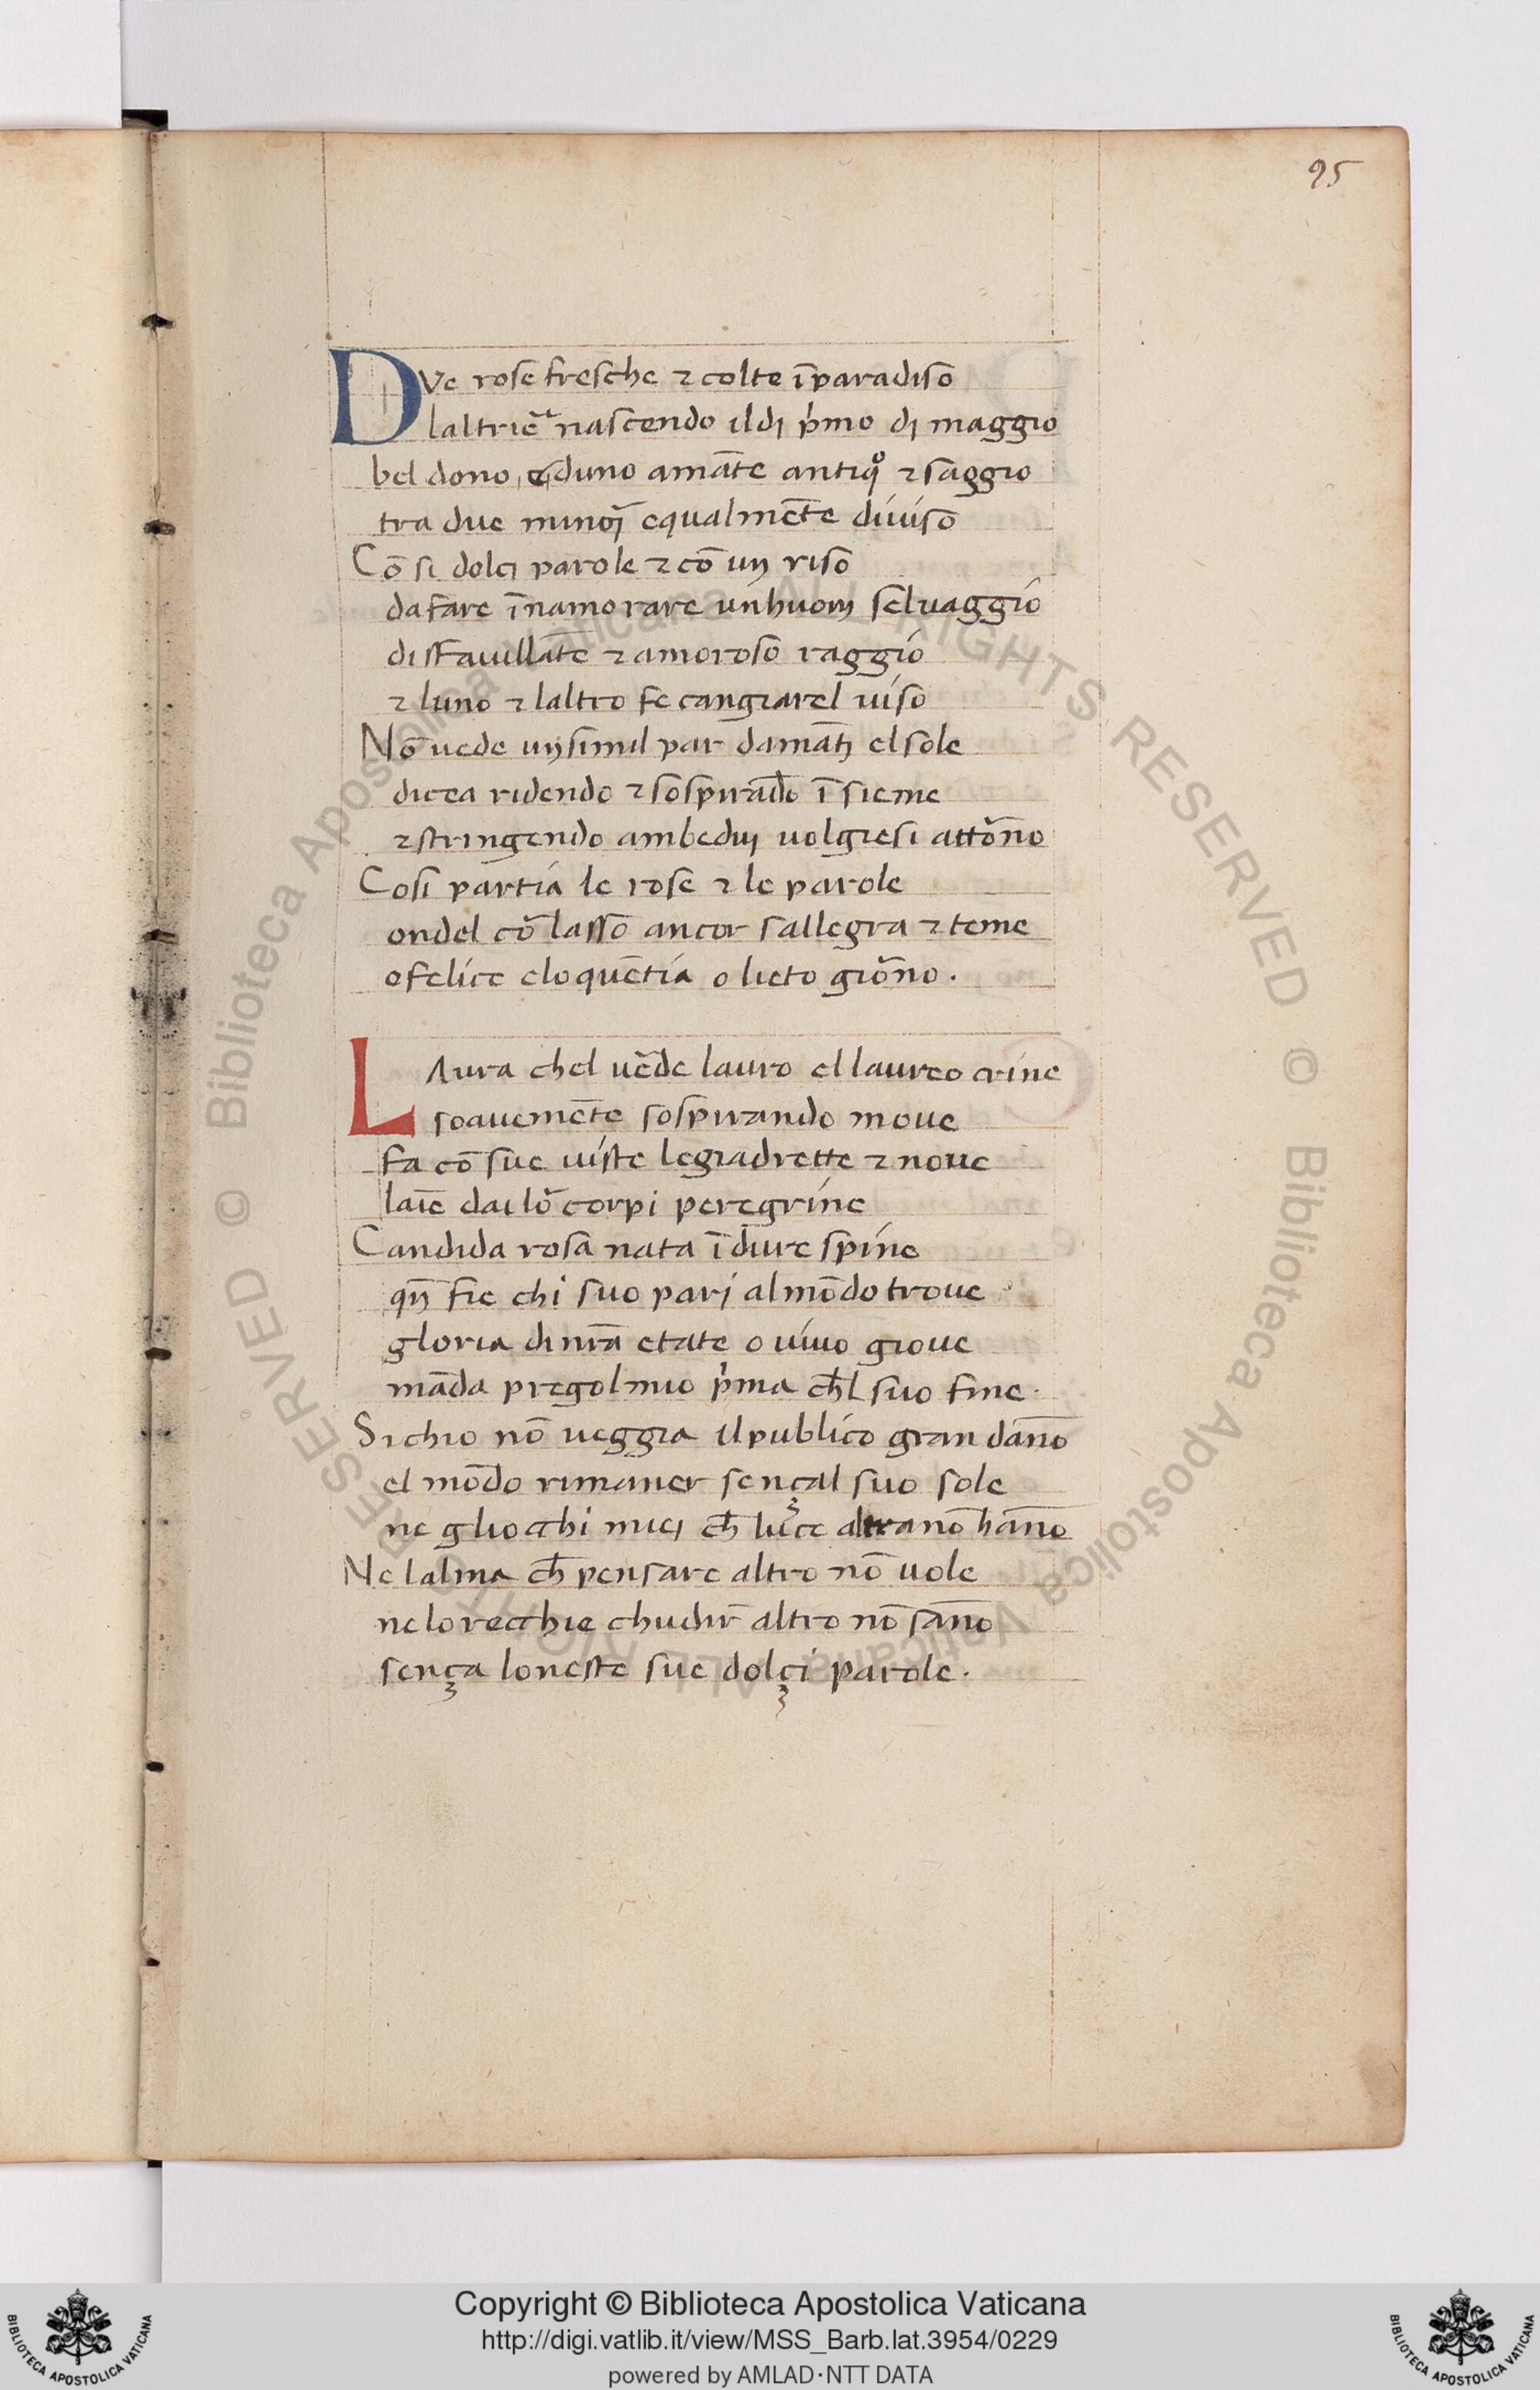 95
DVe rose fresche ⁊ colte ĩparadiso
laltrie᷑ nascendo ildi p̍mo di maggio
bel dono, eduno amãte antiq̊ ⁊ saggio
tra due minoȷ̃ equalmẽte diuiso
Cõ si dolci parole ⁊ cõ un riso
dafare ĩnamorare unhuom seluaggio
disfauillãte ⁊ amoroso raggio
⁊ luno ⁊ laltro fe cangiarel uiso
Nõ uede unsimil par damãti el sole
dicea ridendo ⁊ sospirãdo ĩ sieme
⁊ stringendo ambedui uolgiesi attõno
Cosi partia le rose ⁊ le parole
ondel cõ lasso ancor sallegra ⁊ teme
o felice eloquẽtia o lieto giõno.
LAura chel uẽde lauro el laureo crine
soauemẽte sospirando moue
fa cõ sue uiste legiadrette ⁊ noue
laĩe dai lõ corpi peregrine
Candida rosa nata ĩ dure spine
qñ fie chi suo pari al mõdo troue
gloria di nr̃a etate o uiuo gioue
mãda pregol mio p̍ma ch̃l suo fine.
Si chio nõ ueggia il publico gran dãno
el mõdo rimaner sençal suo sole
ne gliocchi miei ch̃ luce altra nõ hãno
Ne lalma ch̃ pensare altro nõ uole
ne lorecchie chudir̃ altro nõ sãno
sença loneste sue dolçi parole.
© Biblioteca Apostolica Vaticana ALL RIGHTS RESERVED © Biblioteca Apostolica Vaticana ALL RIGHTS RESERVED
Copyright © Biblioteca Apostolica Vaticana
http://digi.vatlib.it/view/MSS_Barb.lat.3954/0229
powered by AMLAD·NTT DATA
BIBLIOTECA APOSTOLICA VATICANA
BIBLIOTECA APOSTOLICA VATICANA